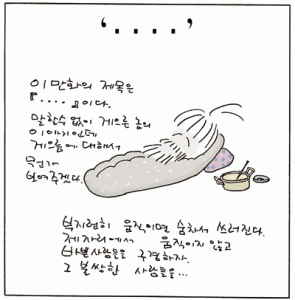 ‘. . . .’
이 만화의 제목은
『. . . .』이다.
말할수 없이 게으른 놈의
이야기인데
게으름에 대해서
뭔가
보여주겠다.
빅지런히 움직이면 숨차서 쓰러진다.
제자리에서 움직이지 않고
바쁜사람들을 구경하자.
그 불쌍한 사람들을...